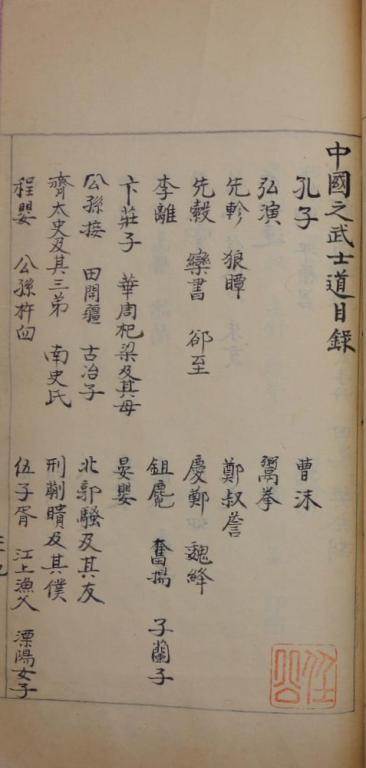 中國之武士道目錄
孔子 曹沫
弘演 鬻拳
先軫 狼瞫 鄭叔詹
先縠 欒書 郤至 慶鄭 魏絳
李離 鉏麑 奮揚 子蘭子
卞莊子 華周杞梁及其母 晏嬰
公孫接 田開疆 古冶子 北郭騷及其友
齊太史及其三弟 南史氏 刑蒯瞶及其僕
程嬰 公孫杵臼 伍子胥 江上漁父 溧陽女子
任公